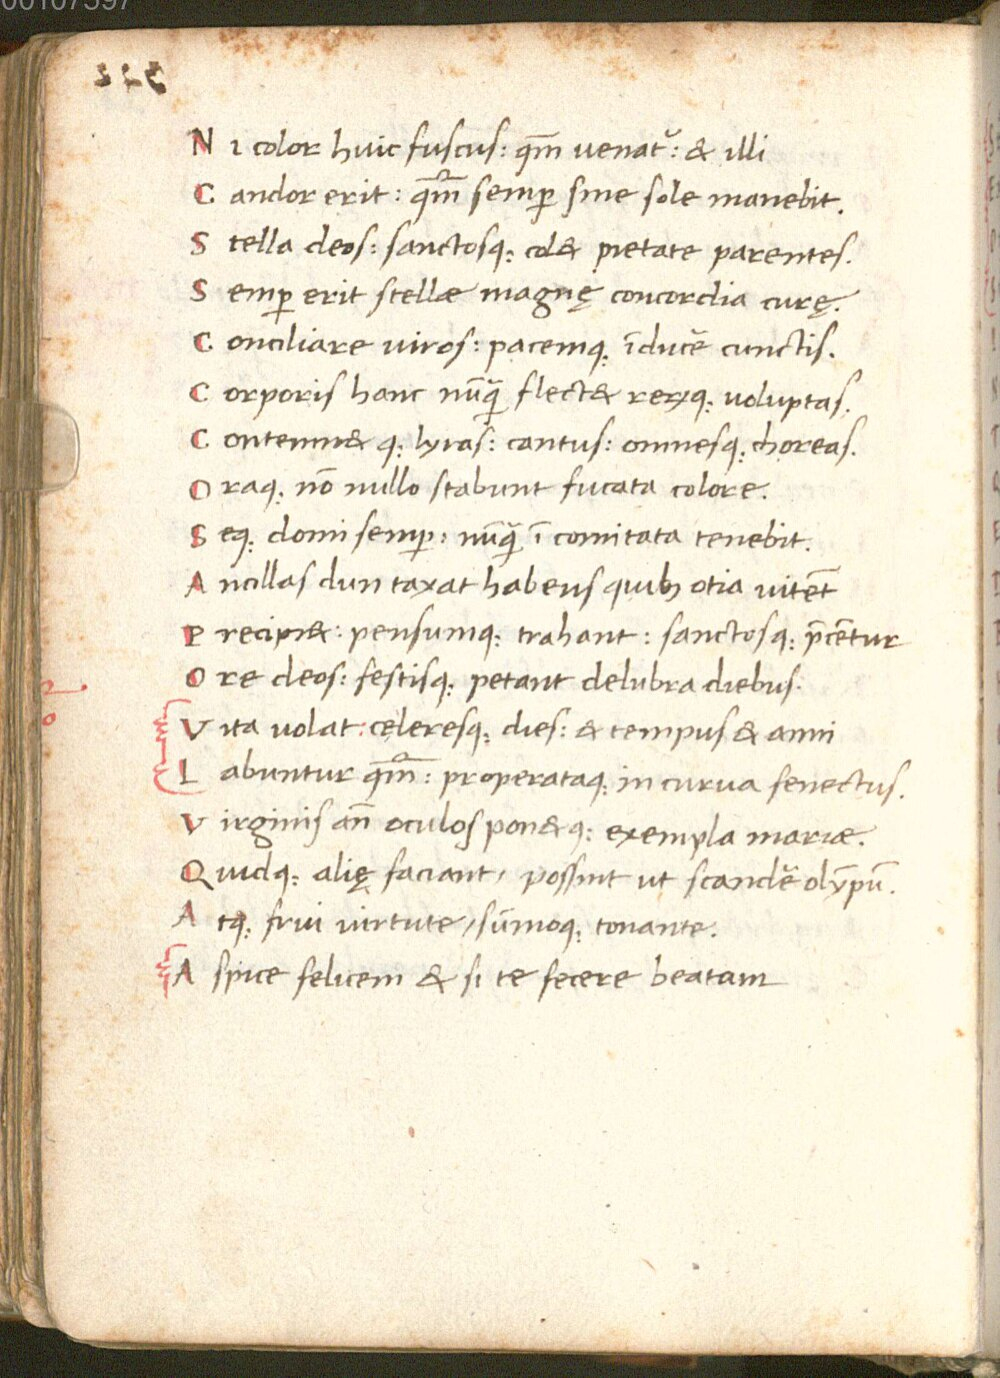 00107397
322
Ni color huic fuscus: qm̅ uenat᷑: & illi
Candor erit: qm̅ semꝑ sine sole manebit.
Stella deos: sanctosq; col& pietate parentes.
Semꝑ erit stellæ magnę concordia curę.
Conciliare uiros: pacemq; īducē cunctis.
Corporis hanc nūq̄ flect& rerꝫq; uoluptas.
Contemn& q; lyras: cantus: omnesq; choreas.
Oraq; nō nullo stabunt fucata colore.
Seq; domi semꝑ: nūq̄ ī comitata tenebit.
Ancillas dun taxat habens quibꝫ otia uitēt
Precipi&: pensumq; trahant: sanctosq; p̄cētur
Ore deos: festisq; petant delubra diebus.
Vita uolat: celeresq; dies: & tempus & anni
Labuntur qm̅: properataq; in curua senectus.
Virginis an̄ oculos pon& q; exempla mariæ.
Quidq; alię faciant, possint ut scandē olȳpū.
Atq; frui uirtute, sūmoq; tonante.
Aspice felicem & si te fecere beatam